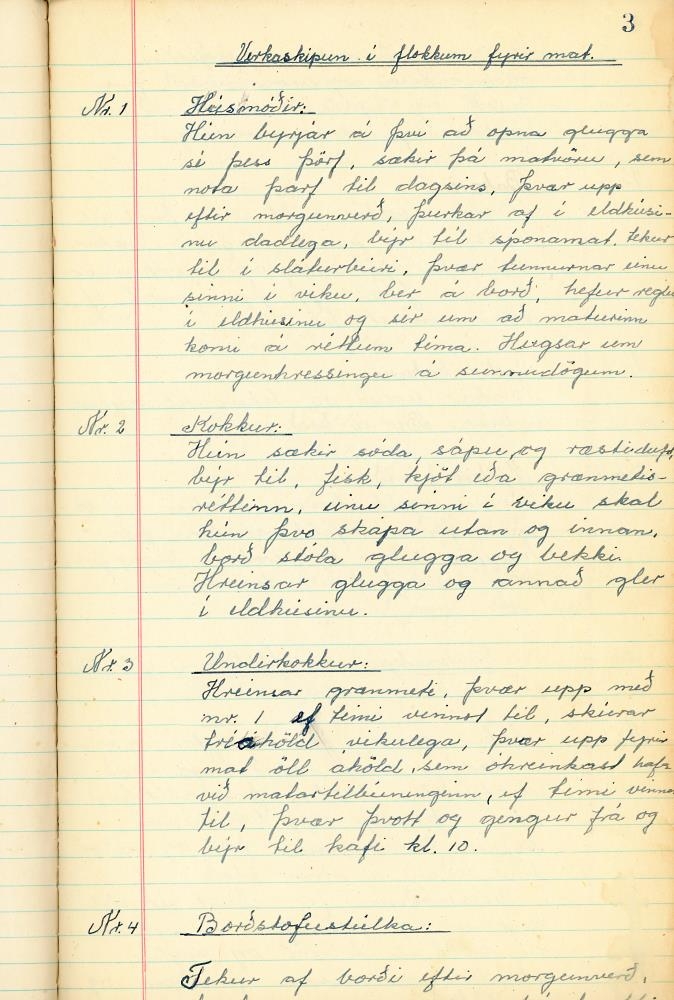 3
Verkaskipun í flokkum fyrir mat.
Nr. 1 Húsmóðir:
Hún byrjar á því að opna glugga
sé þess þörf, sækir þá matvöru, sem
nota þarf til dagsins, þvær upp
eftir morgunverð, þurkar af í eldhúsi-
nu daglega, býr til spónamat, tekur
til í sláturbúri, þvær tunnurnar einu
sinni í viku, ber á borð, hefur reglu
í eldhúsinu og sér um að maturinn
komi á réttum tíma. Hugsar um
morgunhressingu á sunnudögum.
Nr. 2 Kokkur:
Hún sækir sóda, sápu og ræstiduft,
býr til, fisk, kjöt eða grænmetis-
réttinn, einu sinni í viku skal
hún þvo skápa utan og innan,
borð stóla glugga og bekki.
Hreinsar glugga og annað gler
í eldhúsinu.
Nr. 3 Undirkokkur:
Hreinsar grænmeti, þvær upp með
nr. 1 ef tími vinnst til, skúrar
tréáhöld vikulega, þvær upp fyrir
mat öll áhöld, sem óhreinkast hafa
við matartilbúninginn, ef tími vinns
til, þvær þvott og gengur frá og
býr til kafi kl. 10.
Nr. 4 Borðstofustúlka:
Tekur af borði eftir morgunverð,